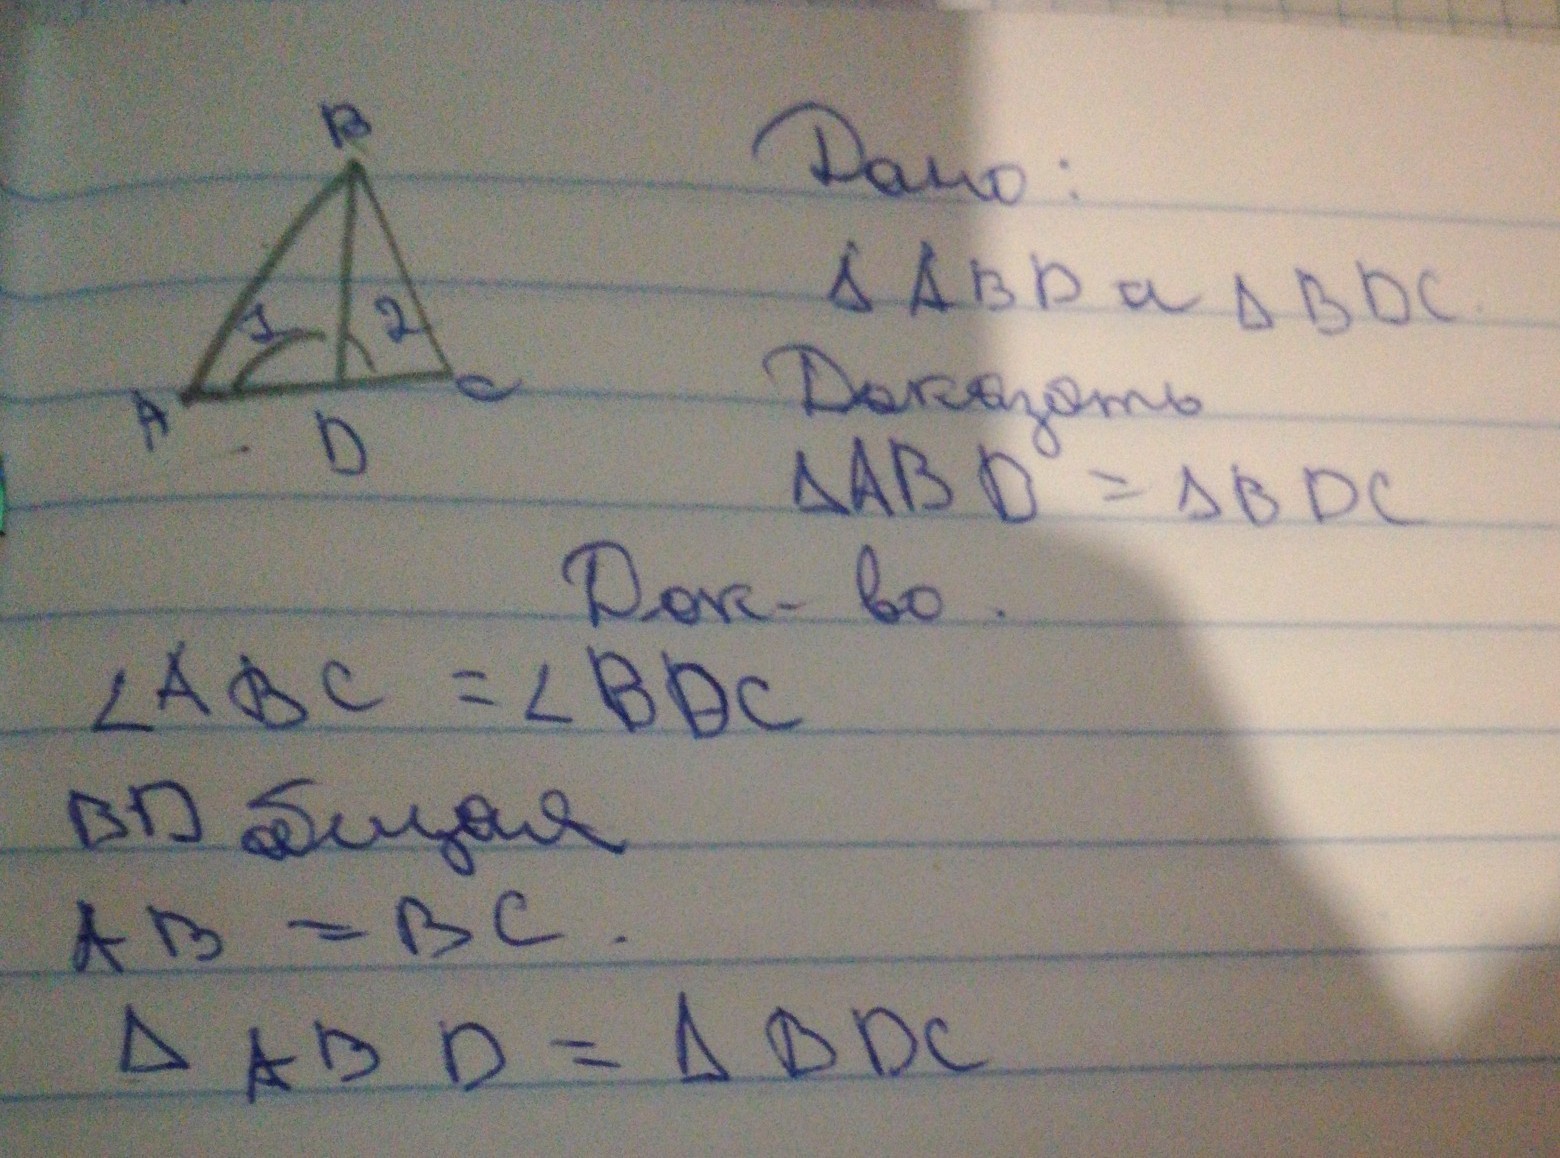 B
1 2
A D C
Дано:
Δ ABD и Δ BDC.
Доказать
ΔABD = ΔBDC
Док-во.
∠ABC = ∠BDC
BD общая
AB = BC.
Δ ABD = Δ BDC